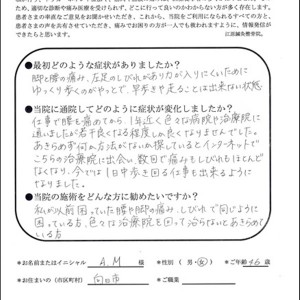 適切な診断や痛み医療を受けられず、どこに行って良いのかわからない方が多く存在します。
患者さまの率直なご意見をお聞かせいただき、これから、当院をご利用になられるすべての方と、
患者さまの声を共有させていただき、痛みでお困りの方が一人でも救われますように、情報発信が
できましたらと思います。
江原鍼灸整骨院。
●最初どのような症状がありましたか？
脚と腰の痛み、左足のしびれがあり力が入りにくいために
ゆっくり歩くのがやっとで、早歩きや走ることは出来ない状態
●当院に通院してどのように症状が変化しましたか？
仕事で腰を痛めてから、1年近く色々な病院や治療院に
通いましたが若干良くなる程度しか良くなりませんでした。
あきらめず何か方法がないか探しているとインターネットで
こちらの治療院に出会い、数回で痛みもしびれもほとんど
なくなり、今では1日中歩き回る仕事も出来るように
なりました。
●当院の施術をどんな方に勧めたいですか？
私が以前困っていた腰や脚の痛み、しびれで同じように
困っている方、色々な治療院を回って治らないとあきらめて
いる方
●お名前またはイニシャル A.M 様 ●性別（ 男・女 ） ●ご年齢 46 歳
●お住まいの（市区町村） 向日市 ●ご職業